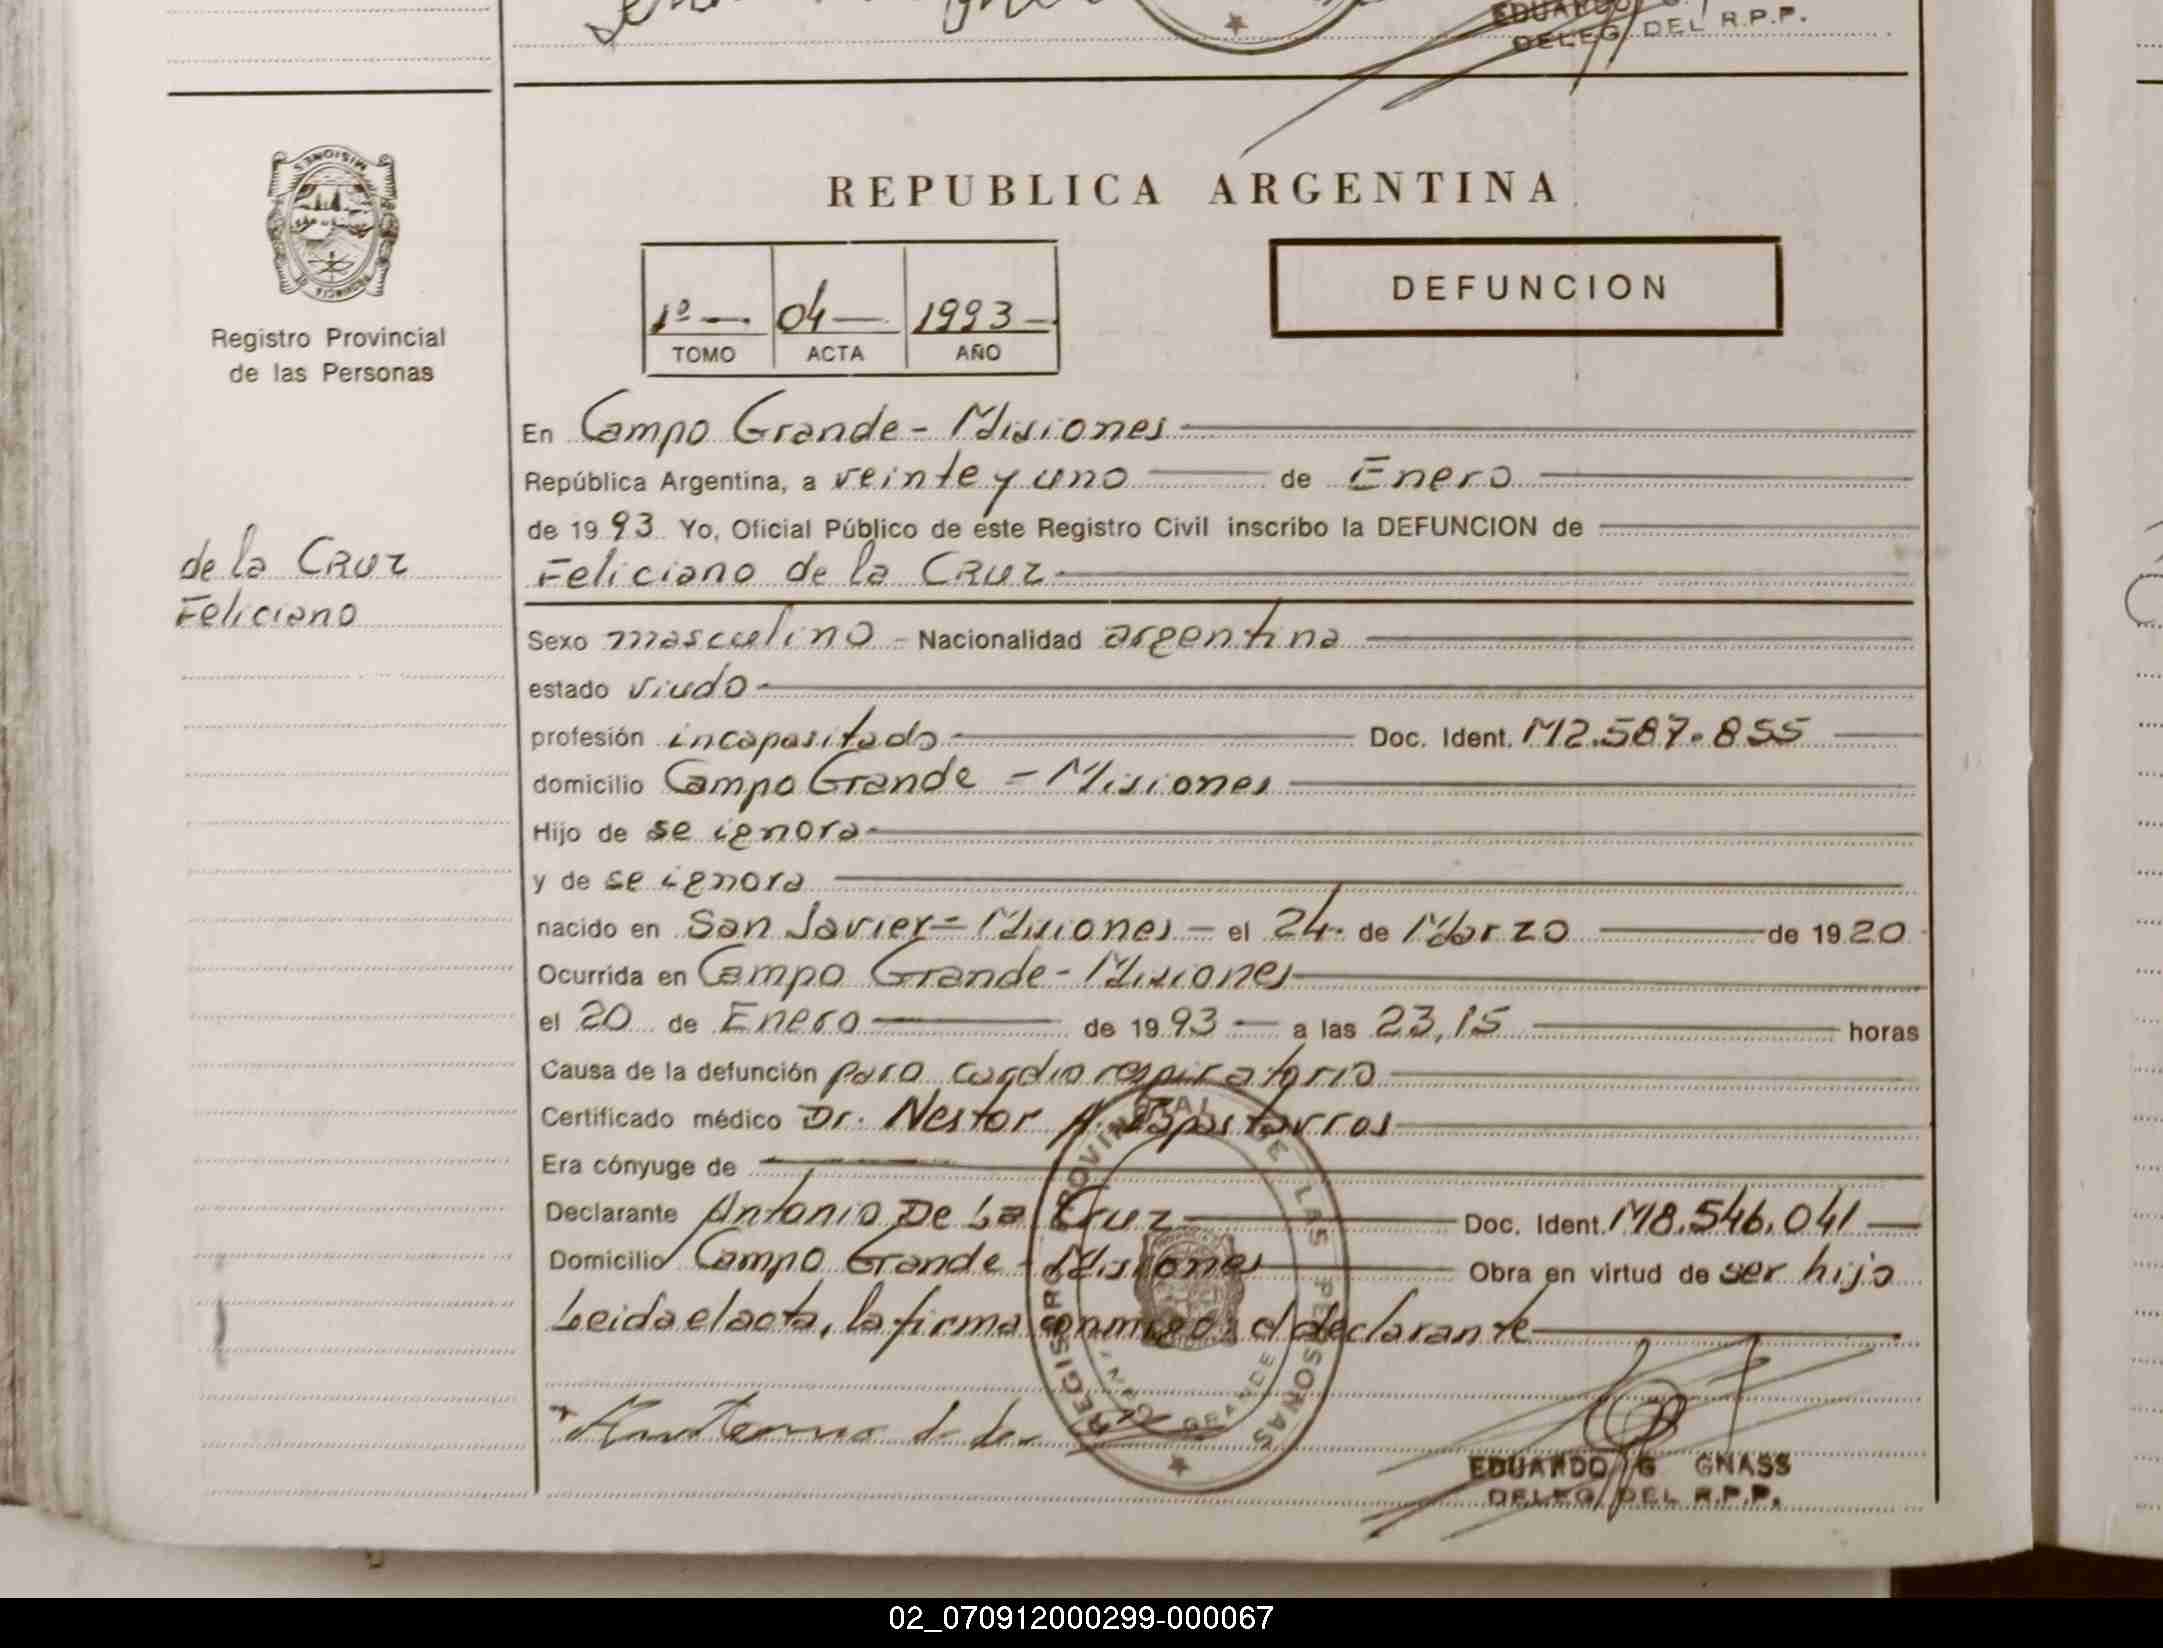 EDUARDO G.
DELEG. DEL R.P.P.
MISIONES
PROVINCIA DE
Registro Provincial
de las Personas
REPUBLICA ARGENTINA
1º — 04 — 1993 —
TOMO ACTA AÑO
DEFUNCION
En Campo Grande - Misiones
República Argentina, a veinte y uno de Enero
de 1993 Yo, Oficial Público de este Registro Civil inscribo la DEFUNCION de
de la Cruz
Feliciano
Feliciano de la Cruz
Sexo masculino - Nacionalidad argentina
estado viudo
profesión incapasitado Doc. Ident. M2.587.855
domicilio Campo Grande - Misiones
Hijo de se ignora
y de se ignora
nacido en San Javier = Misiones - el 24. de Marzo de 1920
Ocurrida en Campo Grande - Misiones
el 20 de Enero de 1993 a las 23,15 horas
Causa de la defunción paro cardio respiratorio
Certificado médico Dr. Nestor A.
Era cónyuge de
Declarante Antonio De La Cruz Doc. Ident. M8.546.041
Domicilio Campo Grande - Misiones Obra en virtud de ser hijo
Leida el acta, la firma conmigo, el declarante
REGISTRO PROVINCIAL DE LAS PERSONAS
GRANDE
EDUARDO G GNASS
DELEG. DEL R.P.P.
02_070912000299-000067